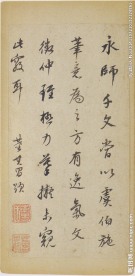 永師千文當以虞伯施
筆意為之方有逸氣文
徵仲極力摹擬止窺
此霞耳
董其昌跋